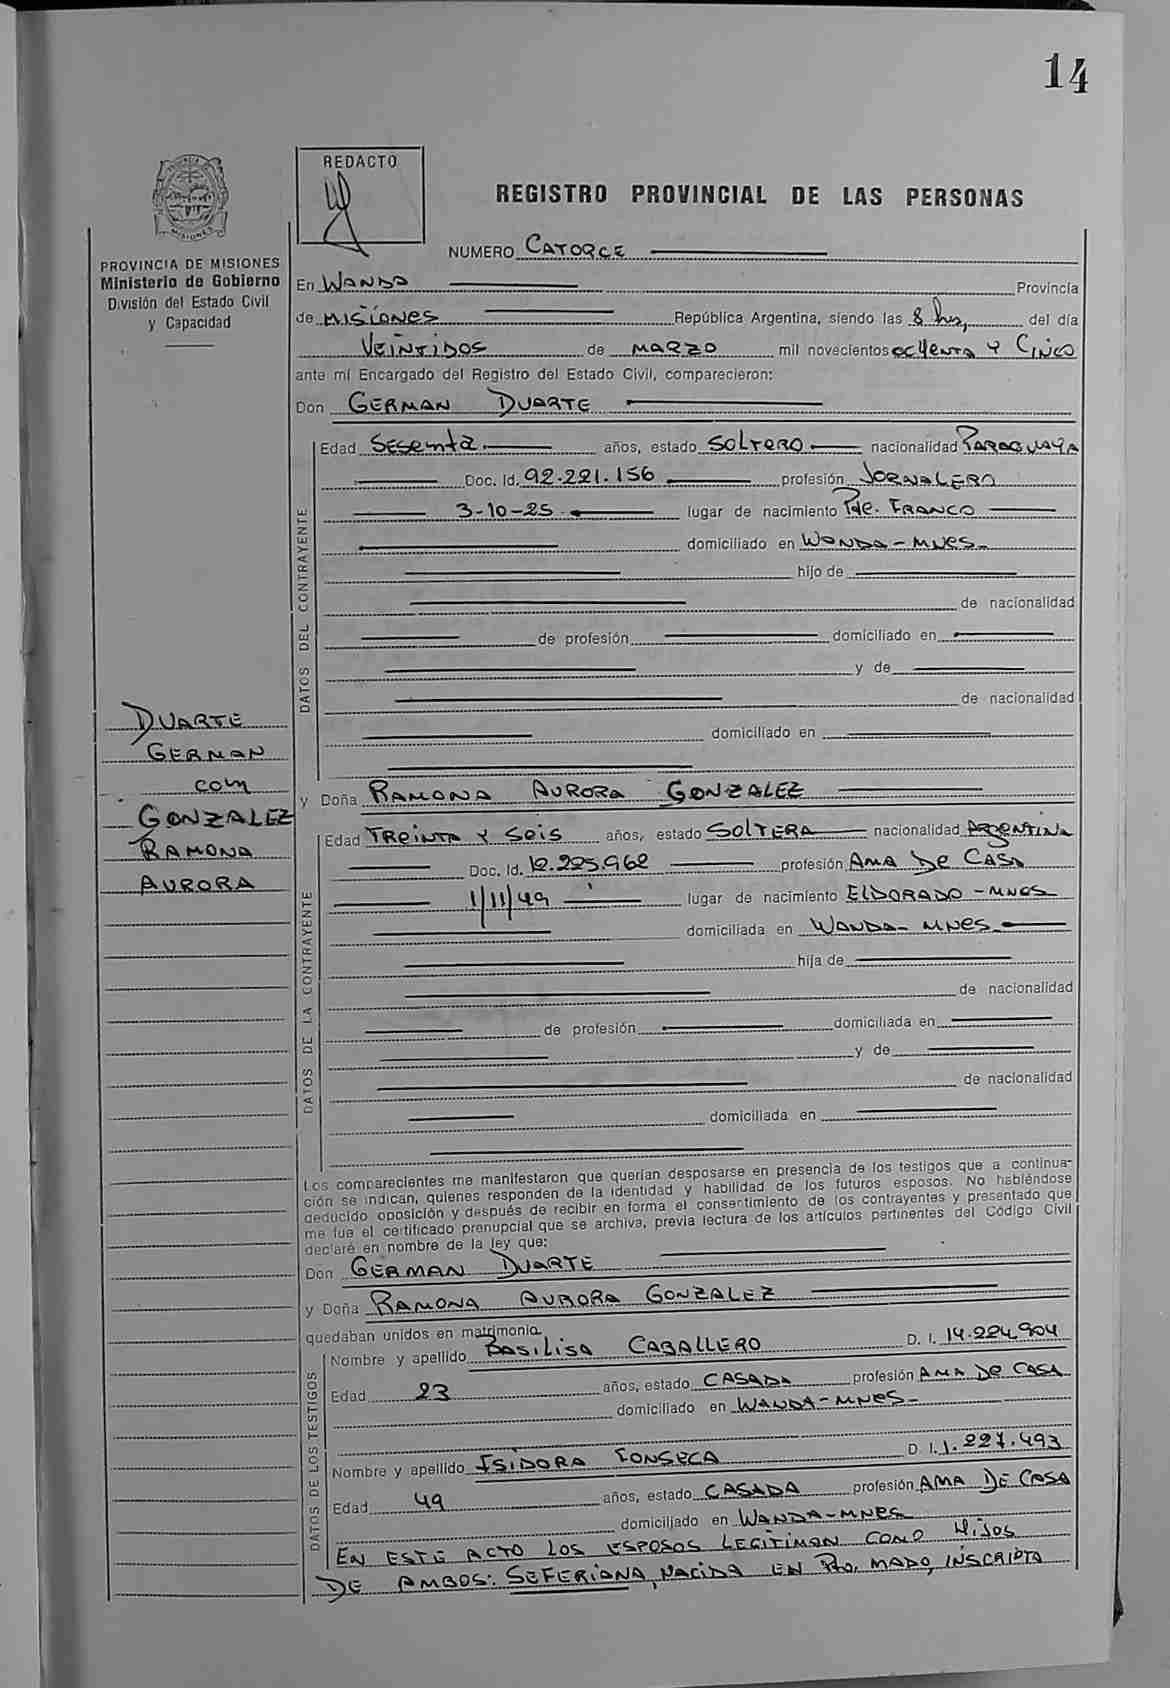 14
REDACTO
REGISTRO PROVINCIAL DE LAS PERSONAS
PROVINCIA DE MISIONES
Ministerio de Gobierno
División del Estado Civil
y Capacidad
NUMERO CATORCE
En WANDA Provincia
de MISIONES República Argentina, siendo las 8 hs, del día
VEINTIDOS de MARZO mil novecientos OCHENTA Y CINCO
ante mí Encargado del Registro del Estado Civil, comparecieron:
Don GERMAN DUARTE
DATOS DEL CONTRAYENTE
Edad Sesenta años, estado SOLTERO nacionalidad PARAGUAYA
Doc. Id. 92.221.156 profesión JORNALERO
3-10-25 lugar de nacimiento Pde. FRANCO
domiciliado en WANDA - MNES.
hijo de
de nacionalidad
de profesión domiciliado en
y de
de nacionalidad
domiciliado en
DUARTE
GERMAN
con
GONZALEZ
RAMONA
AURORA
y Doña RAMONA AURORA GONZALEZ
DATOS DE LA CONTRAYENTE
Edad TREINTA Y SEIS años, estado SOLTERA nacionalidad ARGENTINA
Doc. Id. 12.225.962 profesión AMA DE CASA
1/11/49 lugar de nacimiento ELDORADO - MNES
domiciliada en WANDA - MNES.
hija de
de nacionalidad
de profesión domiciliada en
y de
de nacionalidad
domiciliada en
Los comparecientes me manifestaron que querían desposarse en presencia de los testigos que a continua-
ción se indican, quienes responden de la identidad y habilidad de los futuros esposos. No habiéndose
deducido oposición y después de recibir en forma el consertimiento de los contrayentes y presentado que
me fue el certificado prenupcial que se archiva, previa lectura de los artículos pertinentes del Código Civil
declaré en nombre de la ley que:
Don GERMAN DUARTE
y Doña RAMONA AURORA GONZALEZ
quedaban unidos en matrimonio.
DATOS DE LOS TESTIGOS
Nombre y apellido BASILISA CABALLERO D. I. 14.224.904
Edad 23 años, estado CASADA profesión AMA DE CASA
domiciliado en WANDA - MNES -
Nombre y apellido ISIDORA FONSECA D. I. 1.227.493
Edad 49 años, estado CASADA profesión AMA DE CASA
domiciliado en WANDA - MNES
EN ESTE ACTO LOS ESPOSOS LEGITIMAN COMO HIJOS
DE AMBOS: SEFERIANA, NACIDA EN Pto. MADO, INSCRIPTA